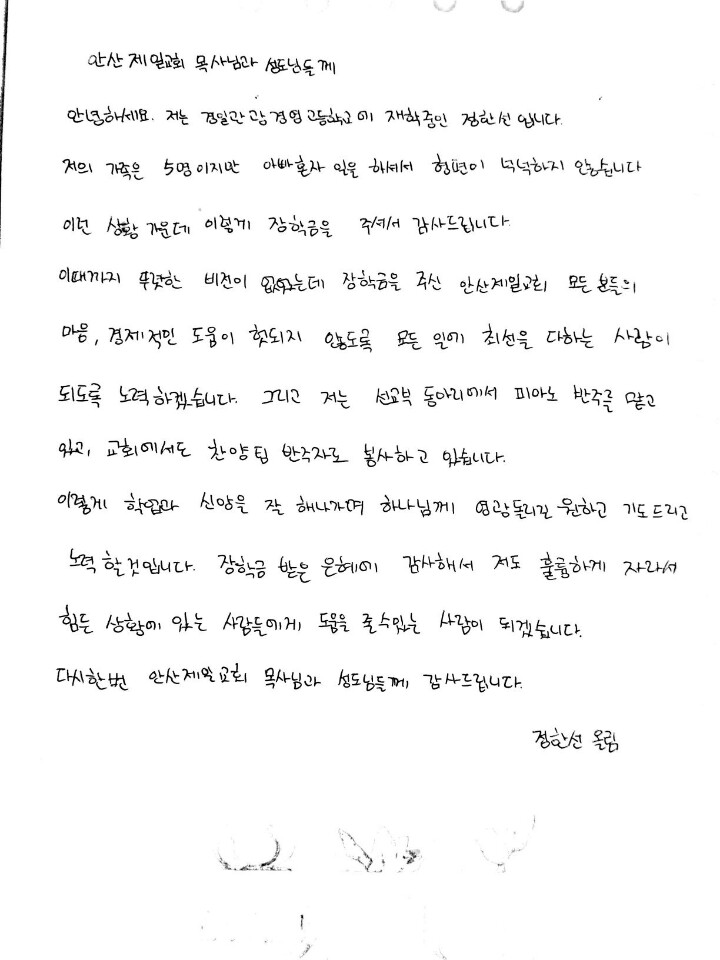 안산 제일교회 목사님과 성도님들께
안녕하세요. 저는 경일관광경영고등학교에 재학중인 정한선입니다.
저의 가족은 5명이지만 아빠혼자 일을 하셔서 형편이 넉넉하지 않습니다
이런 상황 가운데 이렇게 장학금을 주셔서 감사드립니다.
이때까지 뚜렷한 비전이 없었는데 장학금을 주신 안산제일교회 모든 분들의
마음, 경제적인 도움이 헛되지 않도록 모든 일에 최선을 다하는 사람이
되도록 노력하겠습니다. 그리고 저는 선교부 동아리에서 피아노 반주를 맡고
있고, 교회에서도 찬양팀 반주자로 봉사하고 있습니다.
이렇게 학업과 신앙을 잘 해나가며 하나님께 영광돌리길 원하고 기도드리고
노력할것입니다. 장학금 받은 은혜에 감사해서 저도 훌륭하게 자라서
힘든 상황에 있는 사람들에게 도움을 줄수있는 사람이 되겠습니다.
다시한번 안산제일교회 목사님과 성도님들께 감사드립니다.
정한선 올림